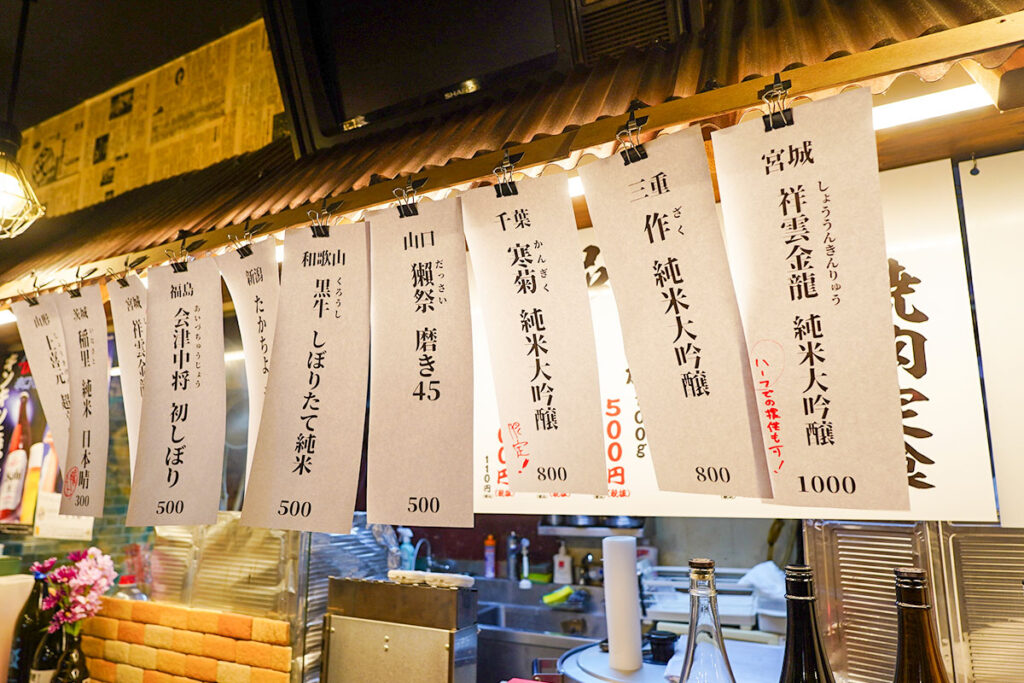 宮城
祥雲金龍 純米大吟醸
しょううんきんりゅう
ハーフでの提供も可!
1000
三重
作 純米大吟醸
ざく
800
千葉
寒菊 純米大吟醸
かんぎく
限定!
800
山口
獺祭 磨き45
だっさい
500
和歌山
黒牛 しぼりたて純米
くろうし
500
新潟
たかちよ
福島
会津中将 初しぼり
あいづちゅうじょう
500
宮城
祥雲金龍
茨城
稲里 純米 日本晴
300
山形
上喜元 超
焼肉定食
00g
500円
(税抜)
110円
SHARP